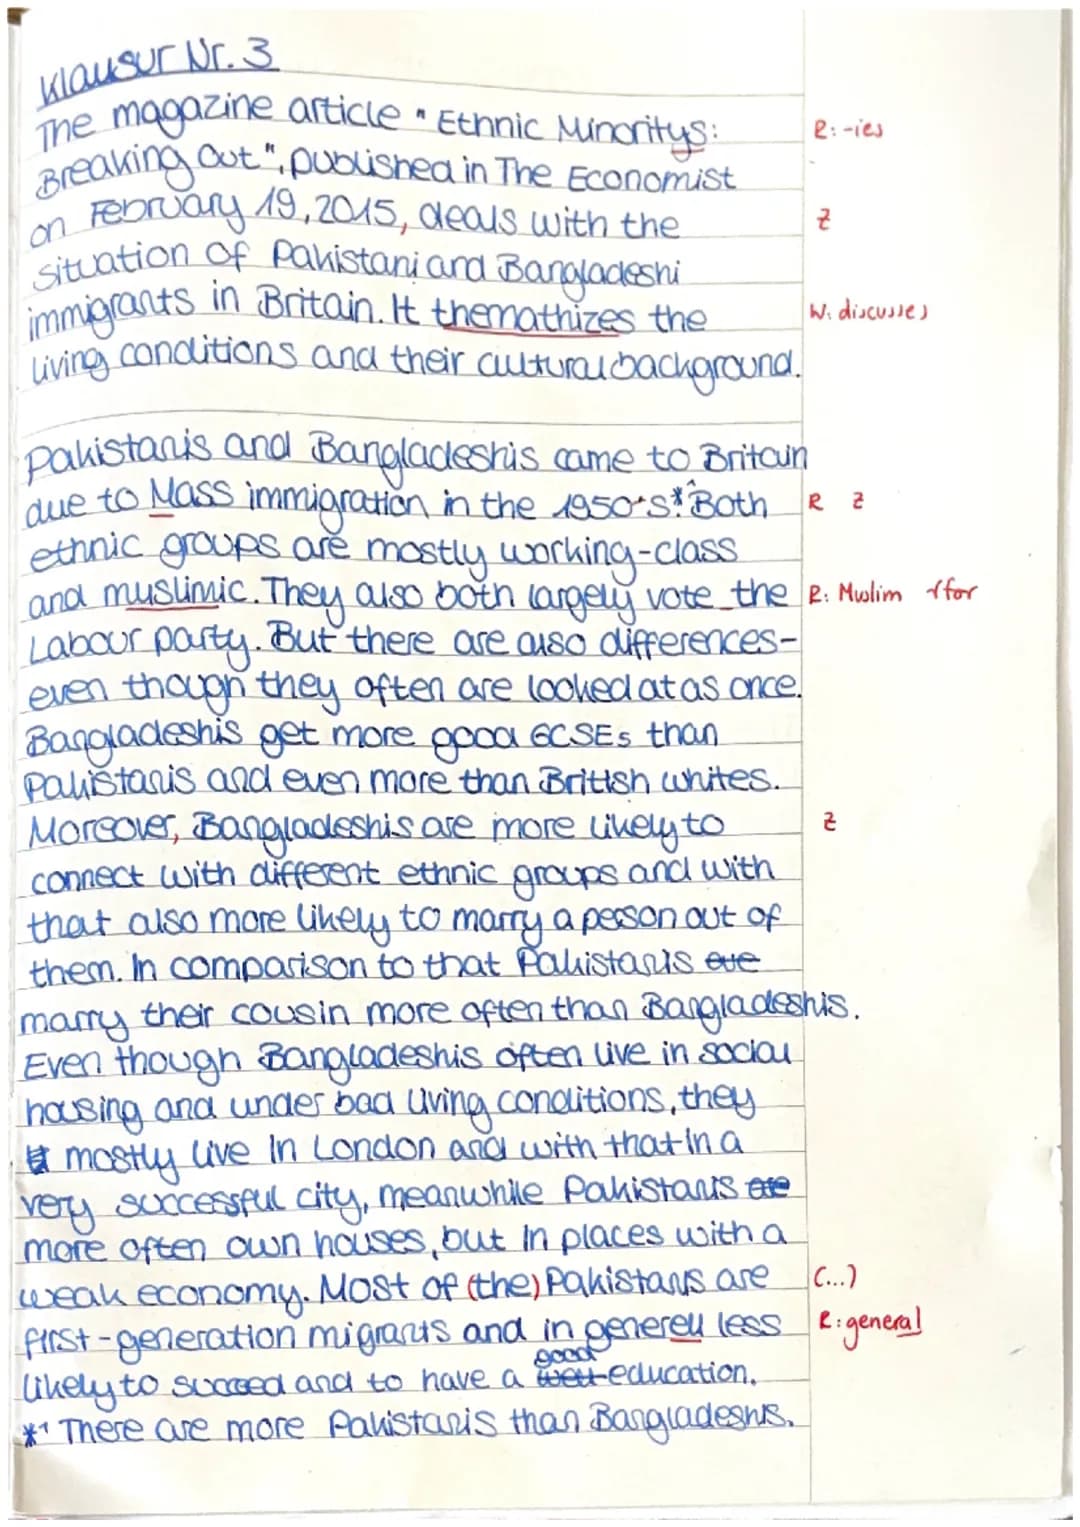 Klausur Nr. 3
The magazine article "Ethnic Minoritys: R: -ies
Breaking Out", published in The Economist
on February 19, 2015, deals with the Z
situation of Pakistani and Bangladeshi
immigrants in Britain. It themathizes the W: discusses
living conditions and their cultural background.
Pakistanis and Bangladeshis came to Britain
due to Mass immigration in the 1950's.*¹ Both R Z
ethnic groups are mostly working-class
and muslimic. They also both largely vote the R: Muslim √for
Labour party. But there are also differences-
even though they often are looked at as once.
Bangladeshis get more good GCSEs than
Pakistanis and even more than British whites.
Moreover, Bangladeshis are more likely to Z
connect with different ethnic groups and with
that also more likely to marry a person out of
them. In comparison to that Pakistanis are
marry their cousin more often than Bangladeshis.
Even though Bangladeshis often live in social
housing and under bad living conditions, they
mostly live in London and with that in a
very successful city, meanwhile Pakistanis are
more often own houses, but in places with a
weak economy. Most of (the) Pakistanis are (...)
first-generation migrants and in generell less R: general
good
likely to succeed and to have a well education.
*¹ There are more Pakistanis than Bangladeshis.